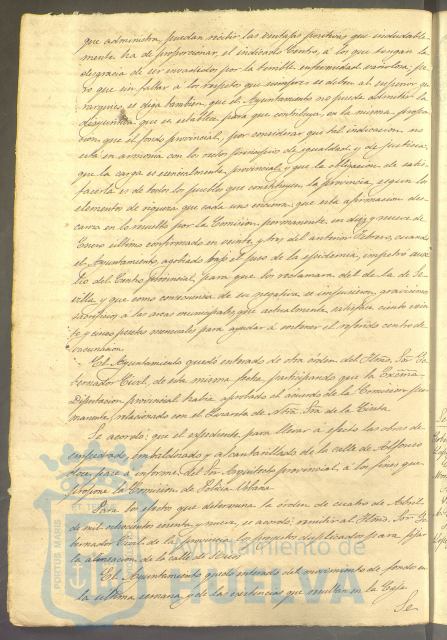 que administra, puedan recibir las ventajas positivas que indudable-
mente ha de proporcionar el indicado Centro, á los que tengan la
desgracia de ser invadidos por la terrible enfermedad variolosa; pe-
ro que sin faltar a los respetos que siempre se deben al superior ge-
rarquico, se diga tambien que el Ayuntamiento no puede admitir la
disyuntiva que se establece para que contribuya en la misma propor-
cion que el fondo provincial, por considerar que tal indicacion no
está en armonia con los rectos principios de igualdad y de justicia,
que la carga es esencialmente provincial y que la obligacion de satis-
facerla es de todos los pueblos que constituyen la provincia, segun los
elementos de riqueza que cada uno encierra; que esta afirmacion des-
cansa en lo resuelto por la Comision permanente en diez y nueve de
Enero último confirmado en veinte y tres del anterior Febrero, cuando
el Ayuntamiento, agobiado bajo el peso de la epidemia, impetró auxi-
lio del Centro provincial, para que los reclamara del de la de Se-
villa y que como consecuencia de su negativa se impusieron gravísimos
sacrificios á las arcas municipales que actualmente satisface ciento vein-
te y cinco pesetas mensuales para ayudar á sostener el referido centro de
vacunacion.
El Ayuntamiento quedó enterado de otra órden del Iltmo. Sor. Go-
bernador Civil, de esta misma fecha participando que la Excma.
Diputacion provincial habia aprobado el acuerdo de la Comision per-
manente, relacionado con el Vivareta de Ntra. Sra. de la Cinta.
Se acordó: que el expediente para llevar á efecto las obras de
empedrado, embaldosado y alcantarillado de la calle de Alfonso
doce, pase á informe del Sor. Arquitecto provincial, á los fines que
propone la Comision de Policia Urbana.
Para los efectos que determina la órden de cuatro de Abril
de mil ochocientos sesenta y nueve, se acordó: remitir al Iltmo. Sor. Go-
bernador Civil de la provincia el proyecto duplicado para fijar
la alineacion de la calle de
El Ayuntamiento quedó enterado del movimiento de fondos en
la última semana y de las existencias que resultan en la Caja.
Se
Ayuntamiento de
HUELVA
PORTUS MARIS